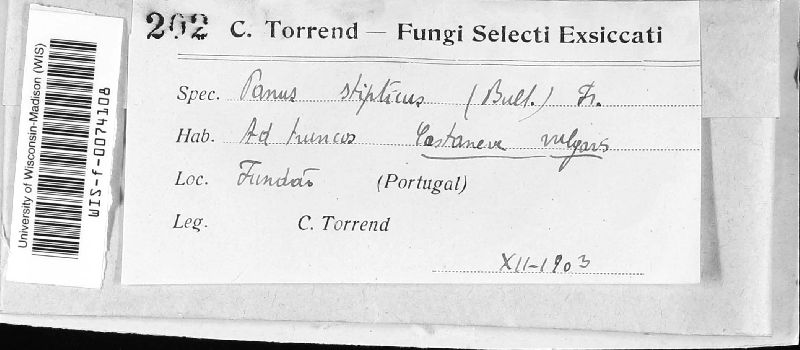 202 C. Torrend — Fungi Selecti Exsiccati
Spec. Panus stipticus (Bull.) Fr.
Hab. Ad truncos Castaneae vulgaris
Loc. Fundão (Portugal)
Leg. C. Torrend
XII-1903
University of Wisconsin-Madison (WIS)
WIS-f-0074108